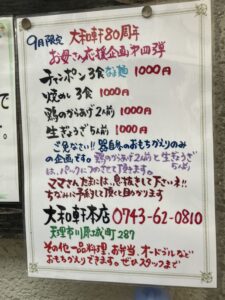 9月限定 大和軒80周年
お母さん応援企画第四弾
チャンポン3食 1000円
焼めし 3食 1000円
鶏のからあげ2人前 1000円
生ぎょうざ5人前 1000円
ごめんなさい!! 器自参のおもちかえりのみ
の企画です。鶏のからあげ2人前と生ぎょうざ
は、パックにつめさせて頂きます。
ママさんたまには、息抜きして下さいネ!!
ちなみに予約して頂くと助かります
大和軒本店 0743-62-0810
天理市川原城町287
その他一品料理、お弁当、オードブルなど
おもちかえりできます。ぜひスタッフまで